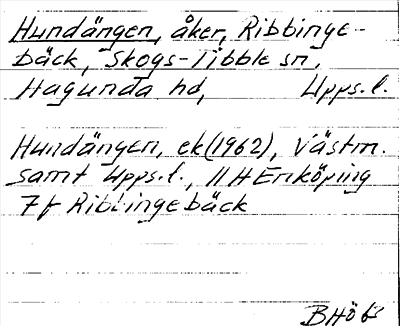 Hundängen, åker, Ribbinge-
bäck, Skogs-Tibble sn,
Hagunda hd, Upps.l.
Hundängen, ek(1962), Västm.
samt Upps.l., 11 H Enköping
7f Ribbingebäck
BHö 65